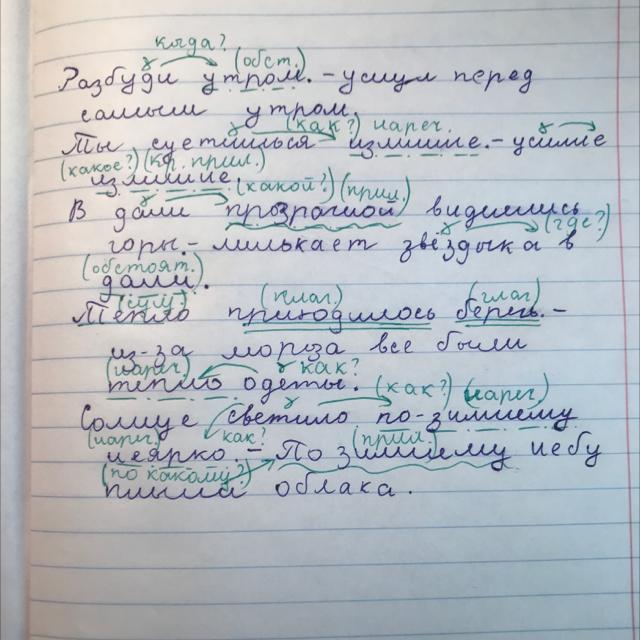 когда?
(обст.)
Разбуди утром. - уснул перед
самым утром.
(как?) нареч.
Ты суетишься излишне. - усилие
(какое?) (кр. прил.)
излишне.
(какой?) (прил.)
В дали прозрачной виднелись
(где?)
горы. - мелькает звёздочка в
(обстоят.)
дали.
(глаг.) (глаг.)
Тепло приходилось беречь. -
из-за мороза все были
(нареч) как?
тепло одеты. (как?) (нареч)
Солнце светило по-зимнему
(нареч) как? (прил.)
неярко. - По зимнему небу
(по какому?)
плыли облака.